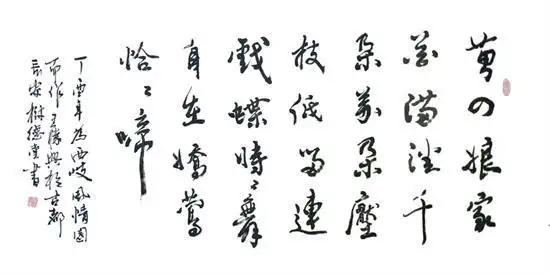 黄四娘家
花满蹊千
朵萬朵壓
枝低留連
戲蝶時々舞
自在嬌鶯
恰々啼
丁酉年為西岐風情園
而作王勝興於古都
長安樹德堂書